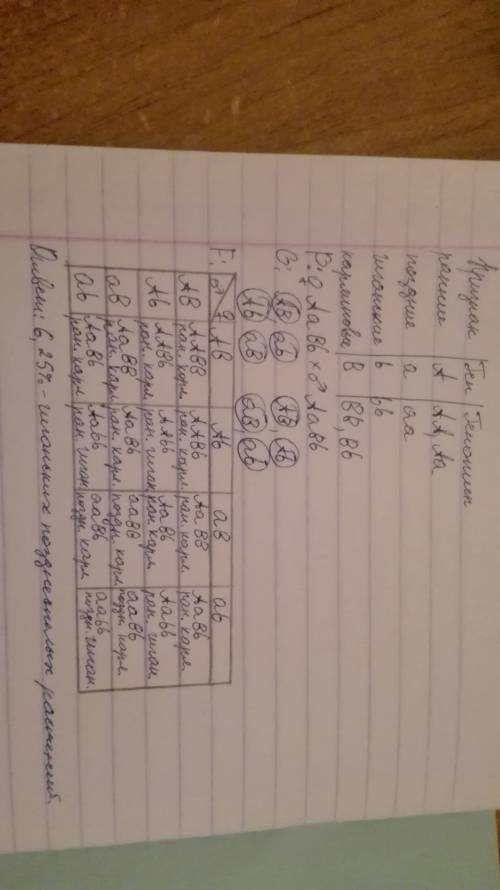 Признак | Ген | Генотип
ранние | A | AA, Aa
поздние | a | aa
гигантские | b | bb
карликовые | B | BB, Bb
P: ♀ AaBb × ♂ AaBb
G: AB, ab AB, Ab
Ab, aB aB, ab
F: ♂ ♀ | AB | Ab | aB | ab
AB | AABB | AABb | AaBB | AaBb
ран. карл. | ран. карл. | ран. карл. | ран. карл.
Ab | AABb | AAbb | AaBb | Aabb
ран. карл. | ран. гиган. | ран. карл. | ран. гиган.
aB | AaBB | AaBb | aaBB | aaBb
ран. карл. | ран. карл. | поздн. карл. | поздн. карл.
ab | AaBb | Aabb | aaBb | aabb
ран. карл. | ран. гиган. | поздн. карл. | поздн. гиган.
Ответ: 6,25% - гигантских позднеспелых растений.